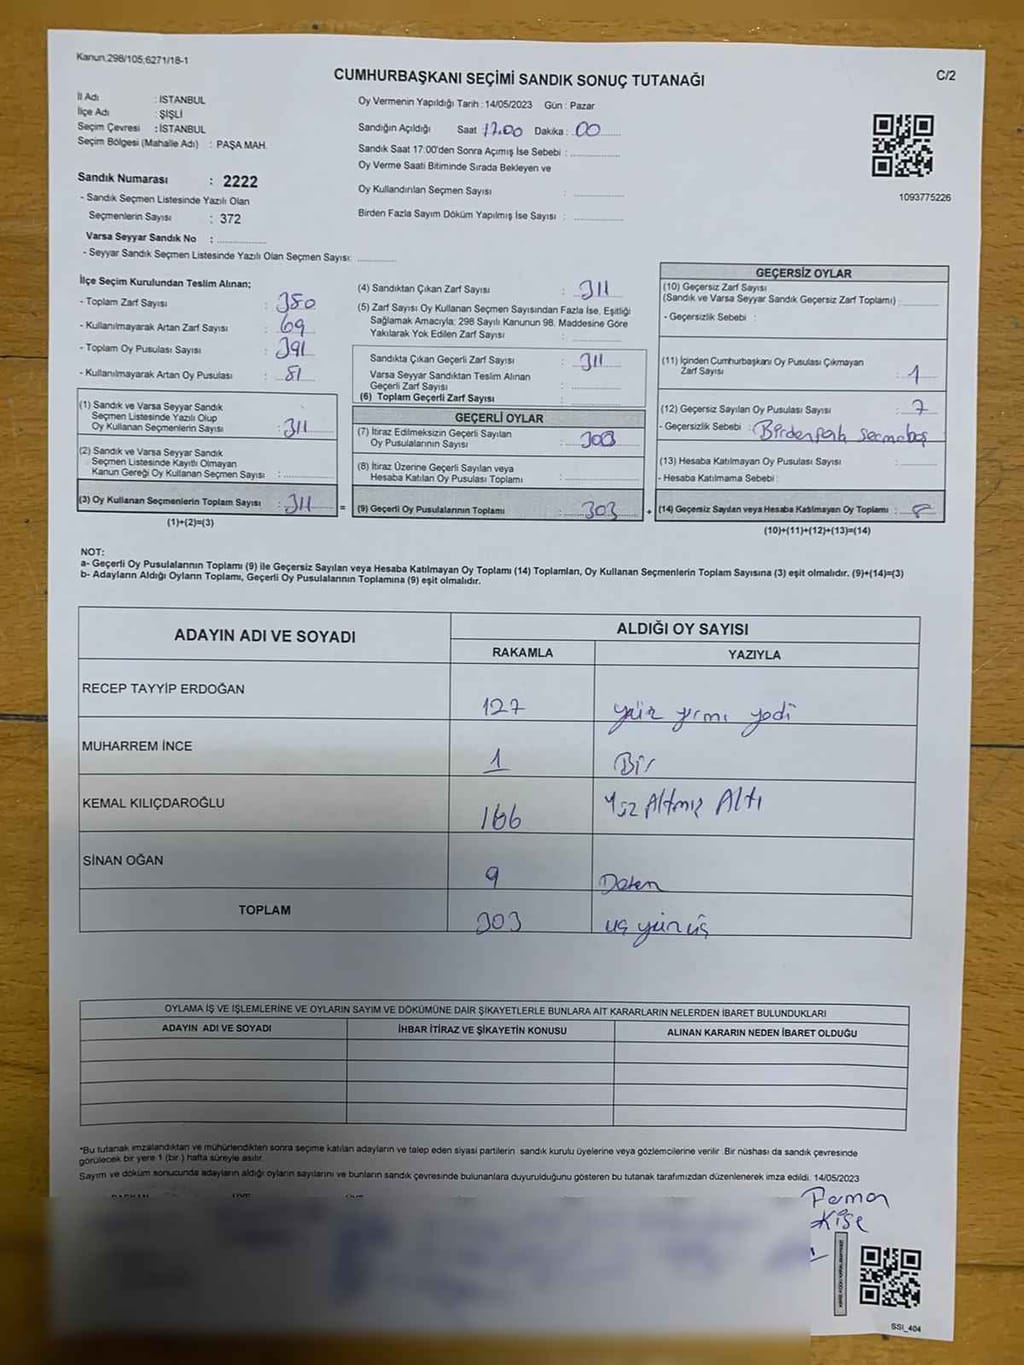 Kanun.298/105,6271/18-1
CUMHURBAŞKANI SEÇİMİ SANDIK SONUÇ TUTANAĞI
C/2
İl Adı : İSTANBUL
İlçe Adı : ŞİŞLİ
Seçim Çevresi : İSTANBUL
Seçim Bölgesi (Mahalle Adı) : PAŞA MAH.
Sandık Numarası : 2222
- Sandık Seçmen Listesinde Yazılı Olan
Seçmenlerin Sayısı : 372
Varsa Seyyar Sandık No :
- Seyyar Sandık Seçmen Listesinde Yazılı Olan Seçmen Sayısı:
Oy Vermenin Yapıldığı Tarih : 14/05/2023 Gün : Pazar
Sandığın Açıldığı Saat 17.00 Dakika : 00
Sandık Saat 17:00'den Sonra Açımış İse Sebebi :
Oy Verme Saati Bitiminde Sırada Bekleyen ve
Oy Kullandırılan Seçmen Sayısı :
Birden Fazla Sayım Döküm Yapılmış İse Sayısı :
1093775226
İlçe Seçim Kurulundan Teslim Alınan;
- Toplam Zarf Sayısı : 380
- Kullanılmayarak Artan Zarf Sayısı : 69
- Toplam Oy Pusulası Sayısı : 391
- Kullanılmayarak Artan Oy Pusulası : 81
(1) Sandık ve Varsa Seyyar Sandık
Seçmen Listesinde Yazılı Olup
Oy Kullanan Seçmenlerin Sayısı : 311
(2) Sandık ve Varsa Seyyar Sandık
Seçmen Listesinde Kayıtlı Olmayan
Kanun Gereği Oy Kullanan Seçmen Sayısı :
(3) Oy Kullanan Seçmenlerin Toplam Sayısı : 311 =
(1)+(2)=(3)
(4) Sandıktan Çıkan Zarf Sayısı : 311
(5) Zarf Sayısı Oy Kullanan Seçmen Sayısından Fazla İse, Eşitliği
Sağlamak Amacıyla; 298 Sayılı Kanunun 98. Maddesine Göre
Yakılarak Yok Edilen Zarf Sayısı :
Sandıkta Çıkan Geçerli Zarf Sayısı : 311
Varsa Seyyar Sandıktan Teslim Alınan
Geçerli Zarf Sayısı :
(6) Toplam Geçerli Zarf Sayısı :
GEÇERLİ OYLAR
(7) İtiraz Edilmeksizin Geçerli Sayılan
Oy Pusulalarının Sayısı : 303
(8) İtiraz Üzerine Geçerli Sayılan veya
Hesaba Katılan Oy Pusulası Toplamı :
(9) Geçerli Oy Pusulalarının Toplamı : 303 +
GEÇERSİZ OYLAR
(10) Geçersiz Zarf Sayısı
(Sandık ve Varsa Seyyar Sandık Geçersiz Zarf Toplamı) :
- Geçersizlik Sebebi :
(11) İçinden Cumhurbaşkanı Oy Pusulası Çıkmayan
Zarf Sayısı : 1
(12) Geçersiz Sayılan Oy Pusulası Sayısı : 7
- Geçersizlik Sebebi :
(13) Hesaba Katılmayan Oy Pusulası Sayısı :
- Hesaba Katılmama Sebebi :
(14) Geçersiz Sayılan veya Hesaba Katılmayan Oy Toplamı : 8
(10)+(11)+(12)+(13)=(14)
NOT:
a- Geçerli Oy Pusulalarının Toplamı (9) ile Geçersiz Sayılan veya Hesaba Katılmayan Oy Toplamı (14) Toplamları, Oy Kullanan Seçmenlerin Toplam Sayısına (3) eşit olmalıdır. (9)+(14)=(3)
b- Adayların Aldığı Oyların Toplamı, Geçerli Oy Pusulalarının Toplamına (9) eşit olmalıdır.
ADAYIN ADI VE SOYADI
ALDIĞI OY SAYISI
RAKAMLA YAZIYLA
RECEP TAYYİP ERDOĞAN 127 yüz yirmi yedi
MUHARREM İNCE 1 Bir
KEMAL KILIÇDAROĞLU 166 Yüz Altmış Altı
SİNAN OĞAN 9
TOPLAM 303 üç yüz üç
OYLAMA İŞ VE İŞLEMLERİNE VE OYLARIN SAYIM VE DÖKÜMÜNE DAİR ŞİKAYETLERLE BUNLARA AİT KARARLARIN NELERDEN İBARET BULUNDUKLARI
ADAYIN ADI VE SOYADI İHBAR İTİRAZ VE ŞİKAYETİN KONUSU ALINAN KARARIN NEDEN İBARET OLDUĞU
*Bu tutanak imzalandıktan ve mühürlendikten sonra seçime katılan adayların ve talep eden siyasi partilerin sandık kurulu üyelerine veya gözlemcilerine verilir. Bir nüshası da sandık çevresinde
görülecek bir yere 1 (bir ) hafta süreyle asılır.
Sayım ve döküm sonucunda adayların aldığı oyların sayılarını ve bunların sandık çevresinde bulunanlara duyurulduğunu gösteren bu tutanak tarafımızdan düzenlenerek imza edildi. 14/05/2023
SSI_404